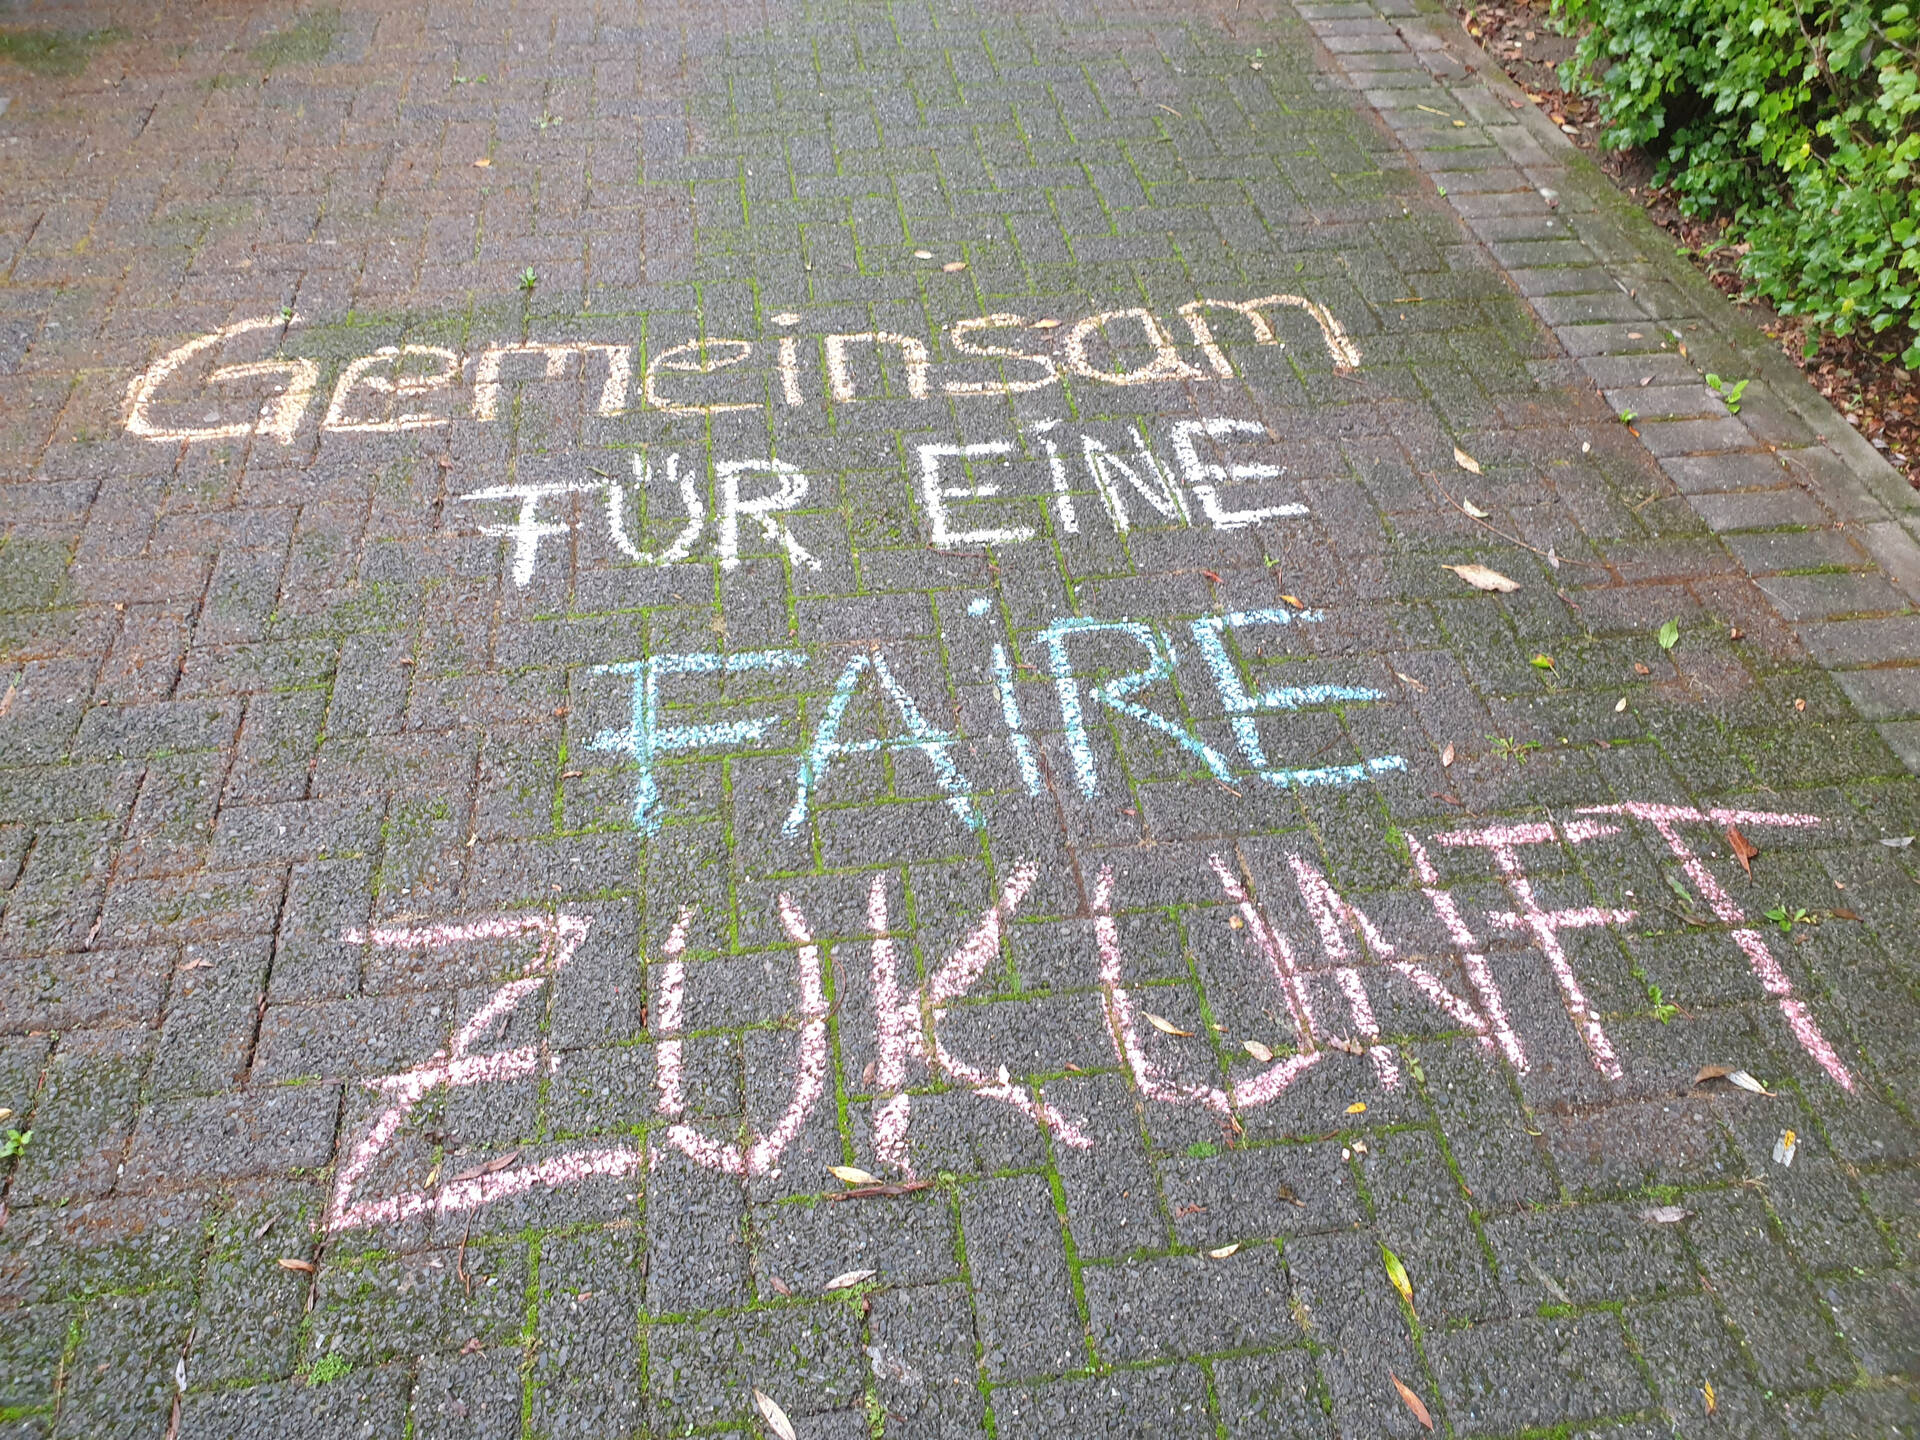 Gemeinsam
FÜR EiNE
FAiRE
ZUKUNFT